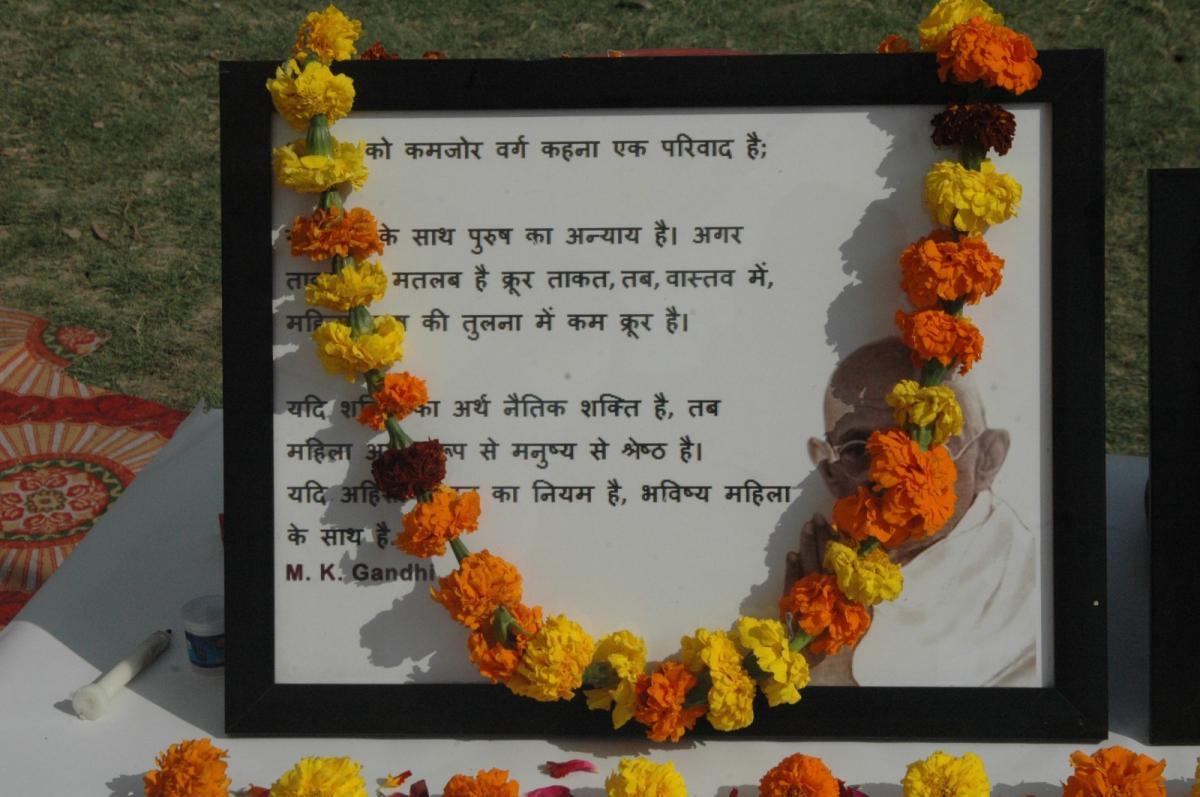 को कमजोर वर्ग कहना एक परिवाद है;
के साथ पुरुष का अन्याय है। अगर
मतलब है क्रूर ताकत, तब, वास्तव में,
की तुलना में कम क्रूर है।
यदि का अर्थ नैतिक शक्ति है, तब
महिला से मनुष्य से श्रेष्ठ है।
यदि का नियम है, भविष्य महिला
के साथ है.
M. K. Gandhi